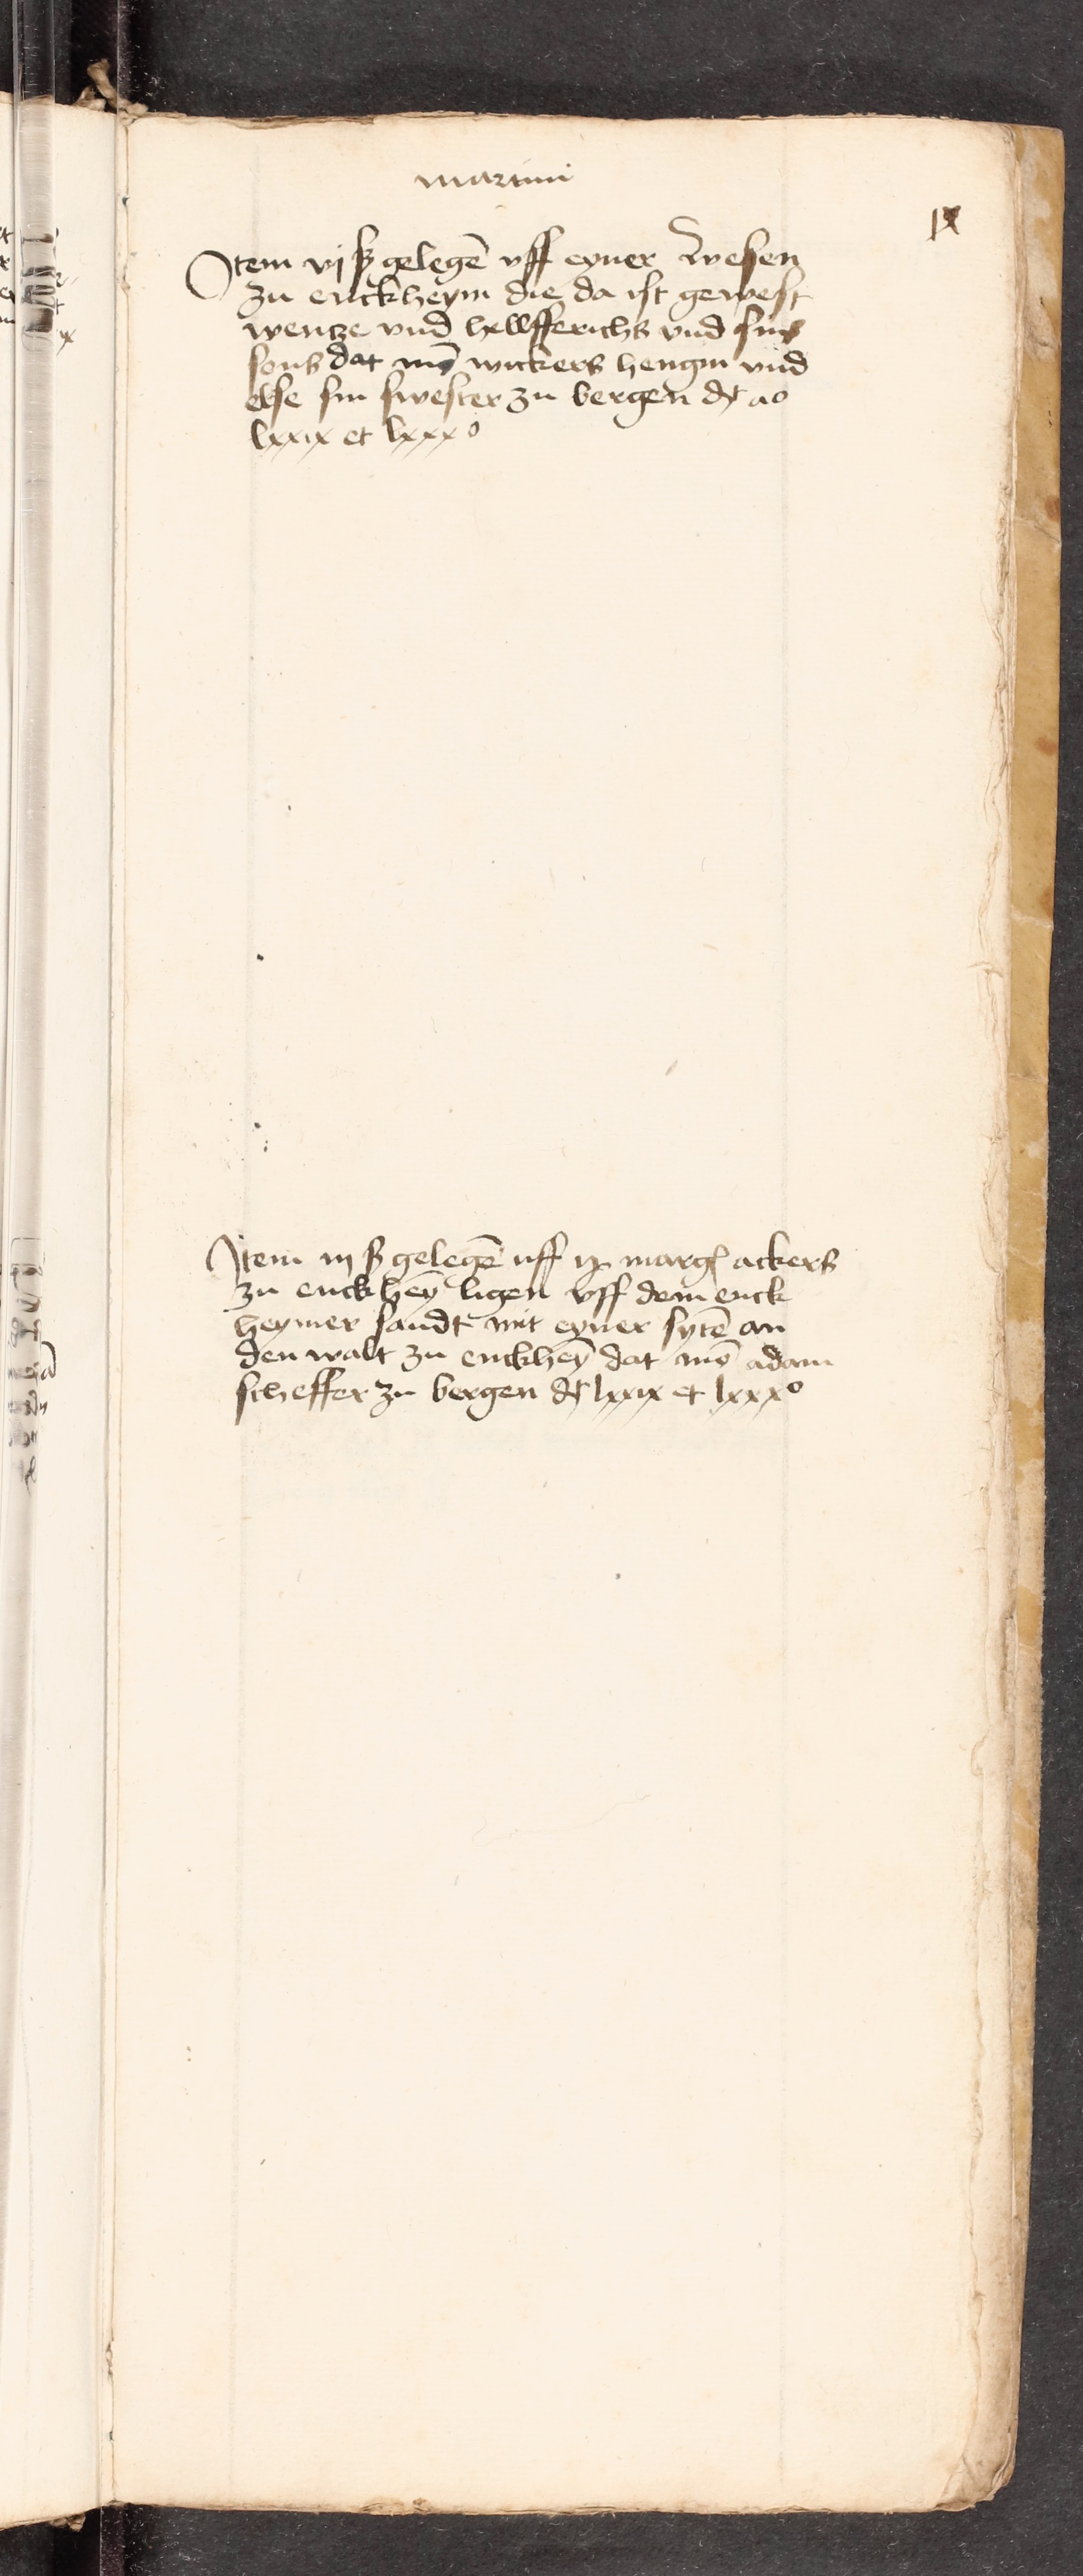 martini
ix
Item vj ß gelegē vff eyner wesen
zu enckheym die da ist gewest
wentze vnd hellfferichs vnd sins
sons dat mō wickers hengin vnd
else sin swester zu bergen dt ao
lxxix et lxxxo
Item iij ß gelegē uff marg ackers
zu enckheȳ ligen vff dem enck
heymer sandt mit eyner sytē an
den walt zu enckheȳ dat mō adam
scheffer zu bergen dt lxxix et lxxxo